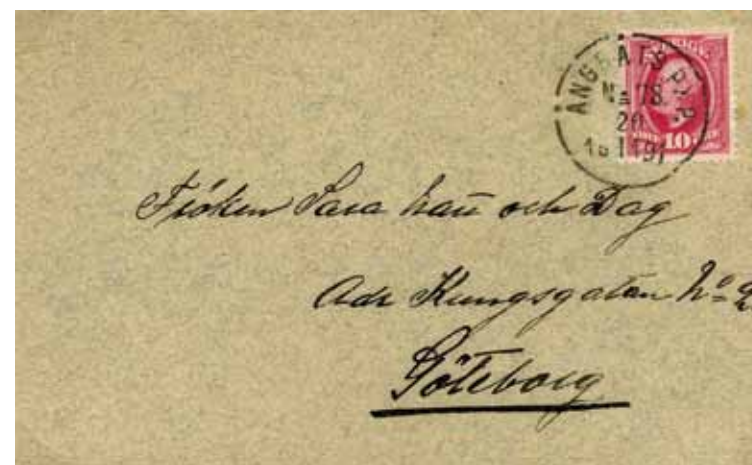 ÅNGBÅTS PXP.
No 78.
20
1891
10
Fröken Sara Natt och Dag
Adr Kungsgatan No 2
Göteborg